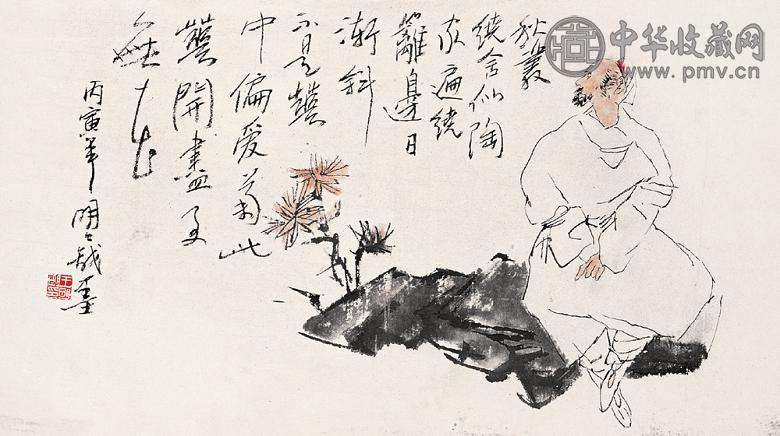 中华收藏网
www.pmv.cn
秋叢
繞舍似陶
家遍繞
籬邊日
漸斜
不是蘤
中偏愛菊此
蘤開盡更
無花
丙寅年 明